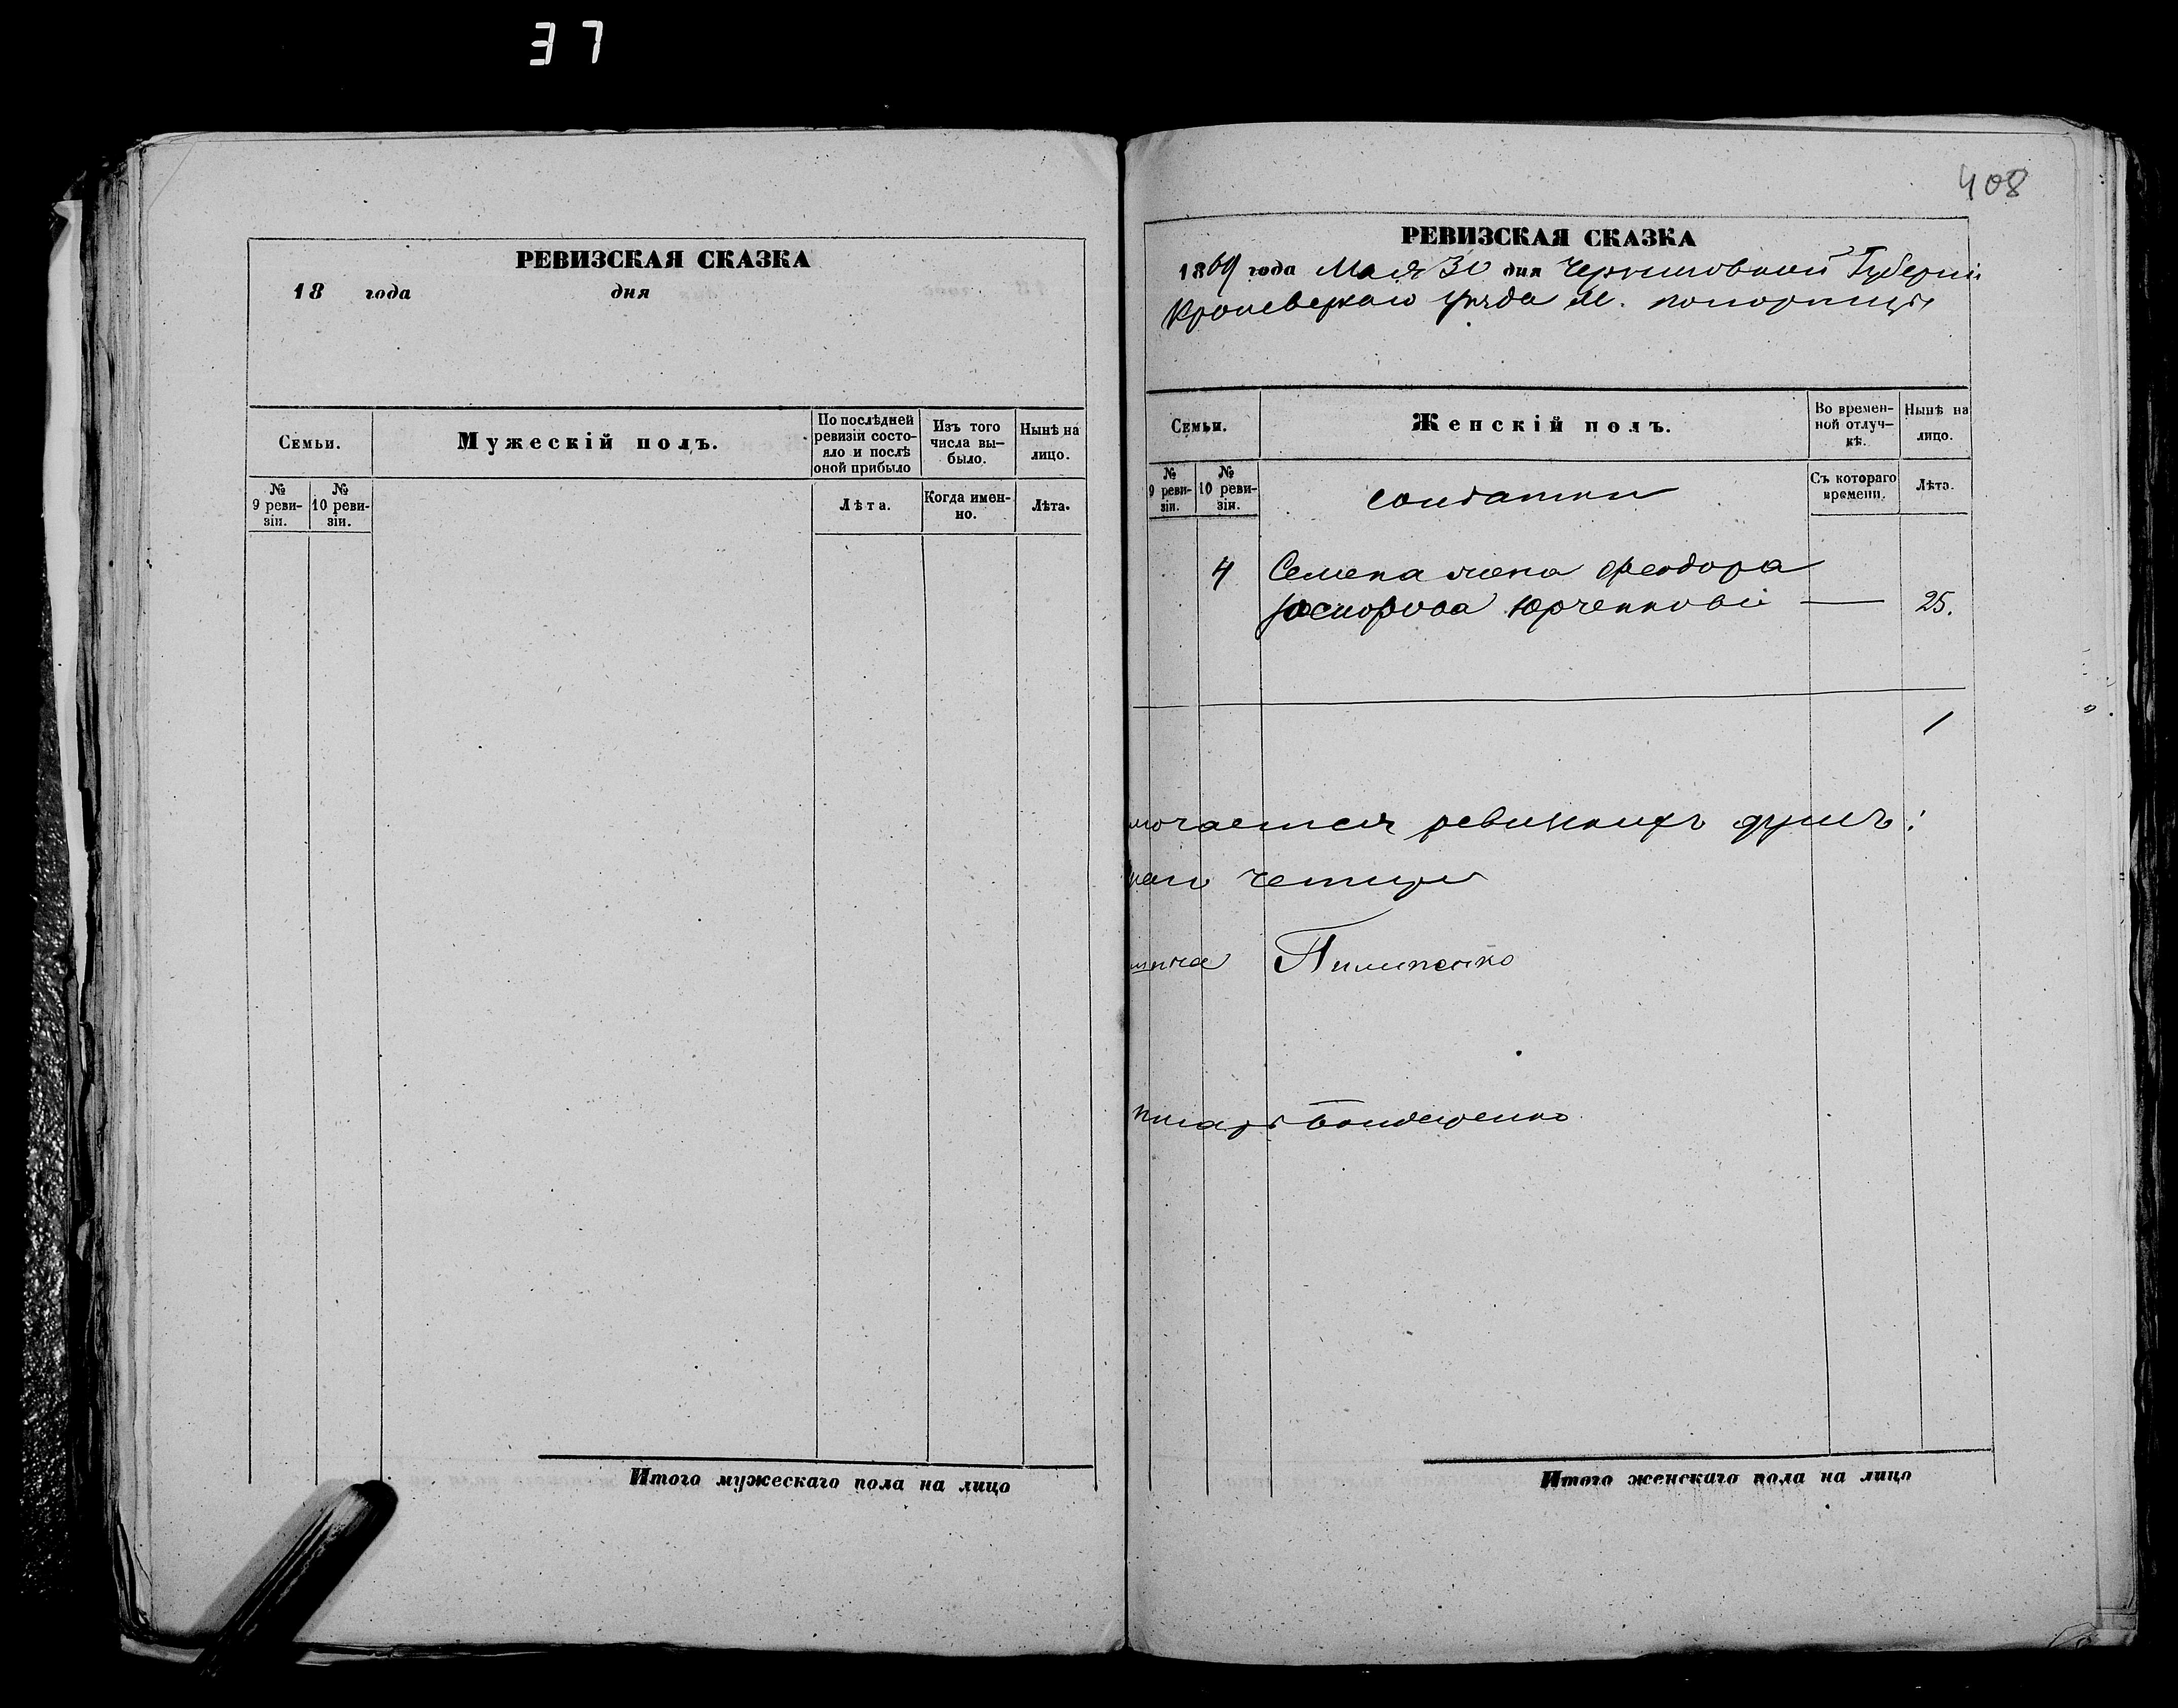 37
408
РЕВИЗСКАЯ СКАЗКА
18 года дня
Семьи.
Мужескій полъ.
По послѣдней ревизіи состо-
яло и послѣ оной прибыло
Изъ того числа вы-
было.
Нынѣ на лицо.
№ 9 реви-
зіи.
№ 10 реви-
зіи.
Лѣта.
Когда имен-
но.
Лѣта.
Итого мужескаго пола на лицо
РЕВИЗСКАЯ СКАЗКА
1869 года Мая 30 дня Черниговской Губерніи
Кролевецкаго уѣзда М. Понорницы
Семьи.
Женскій полъ.
Во времен-
ной отлуч-
кѣ.
Нынѣ на лицо.
№ 9 реви-
зіи.
№ 10 реви-
зіи.
Съ котораго времени.
Лѣта.
солдатки
4 Семена жена Феодора
Юрченковой — 25.
1
лючается ревизкихъ душъ:
четыре
Пилипенко
писарь Бондаренко
Итого женскаго пола на лицо